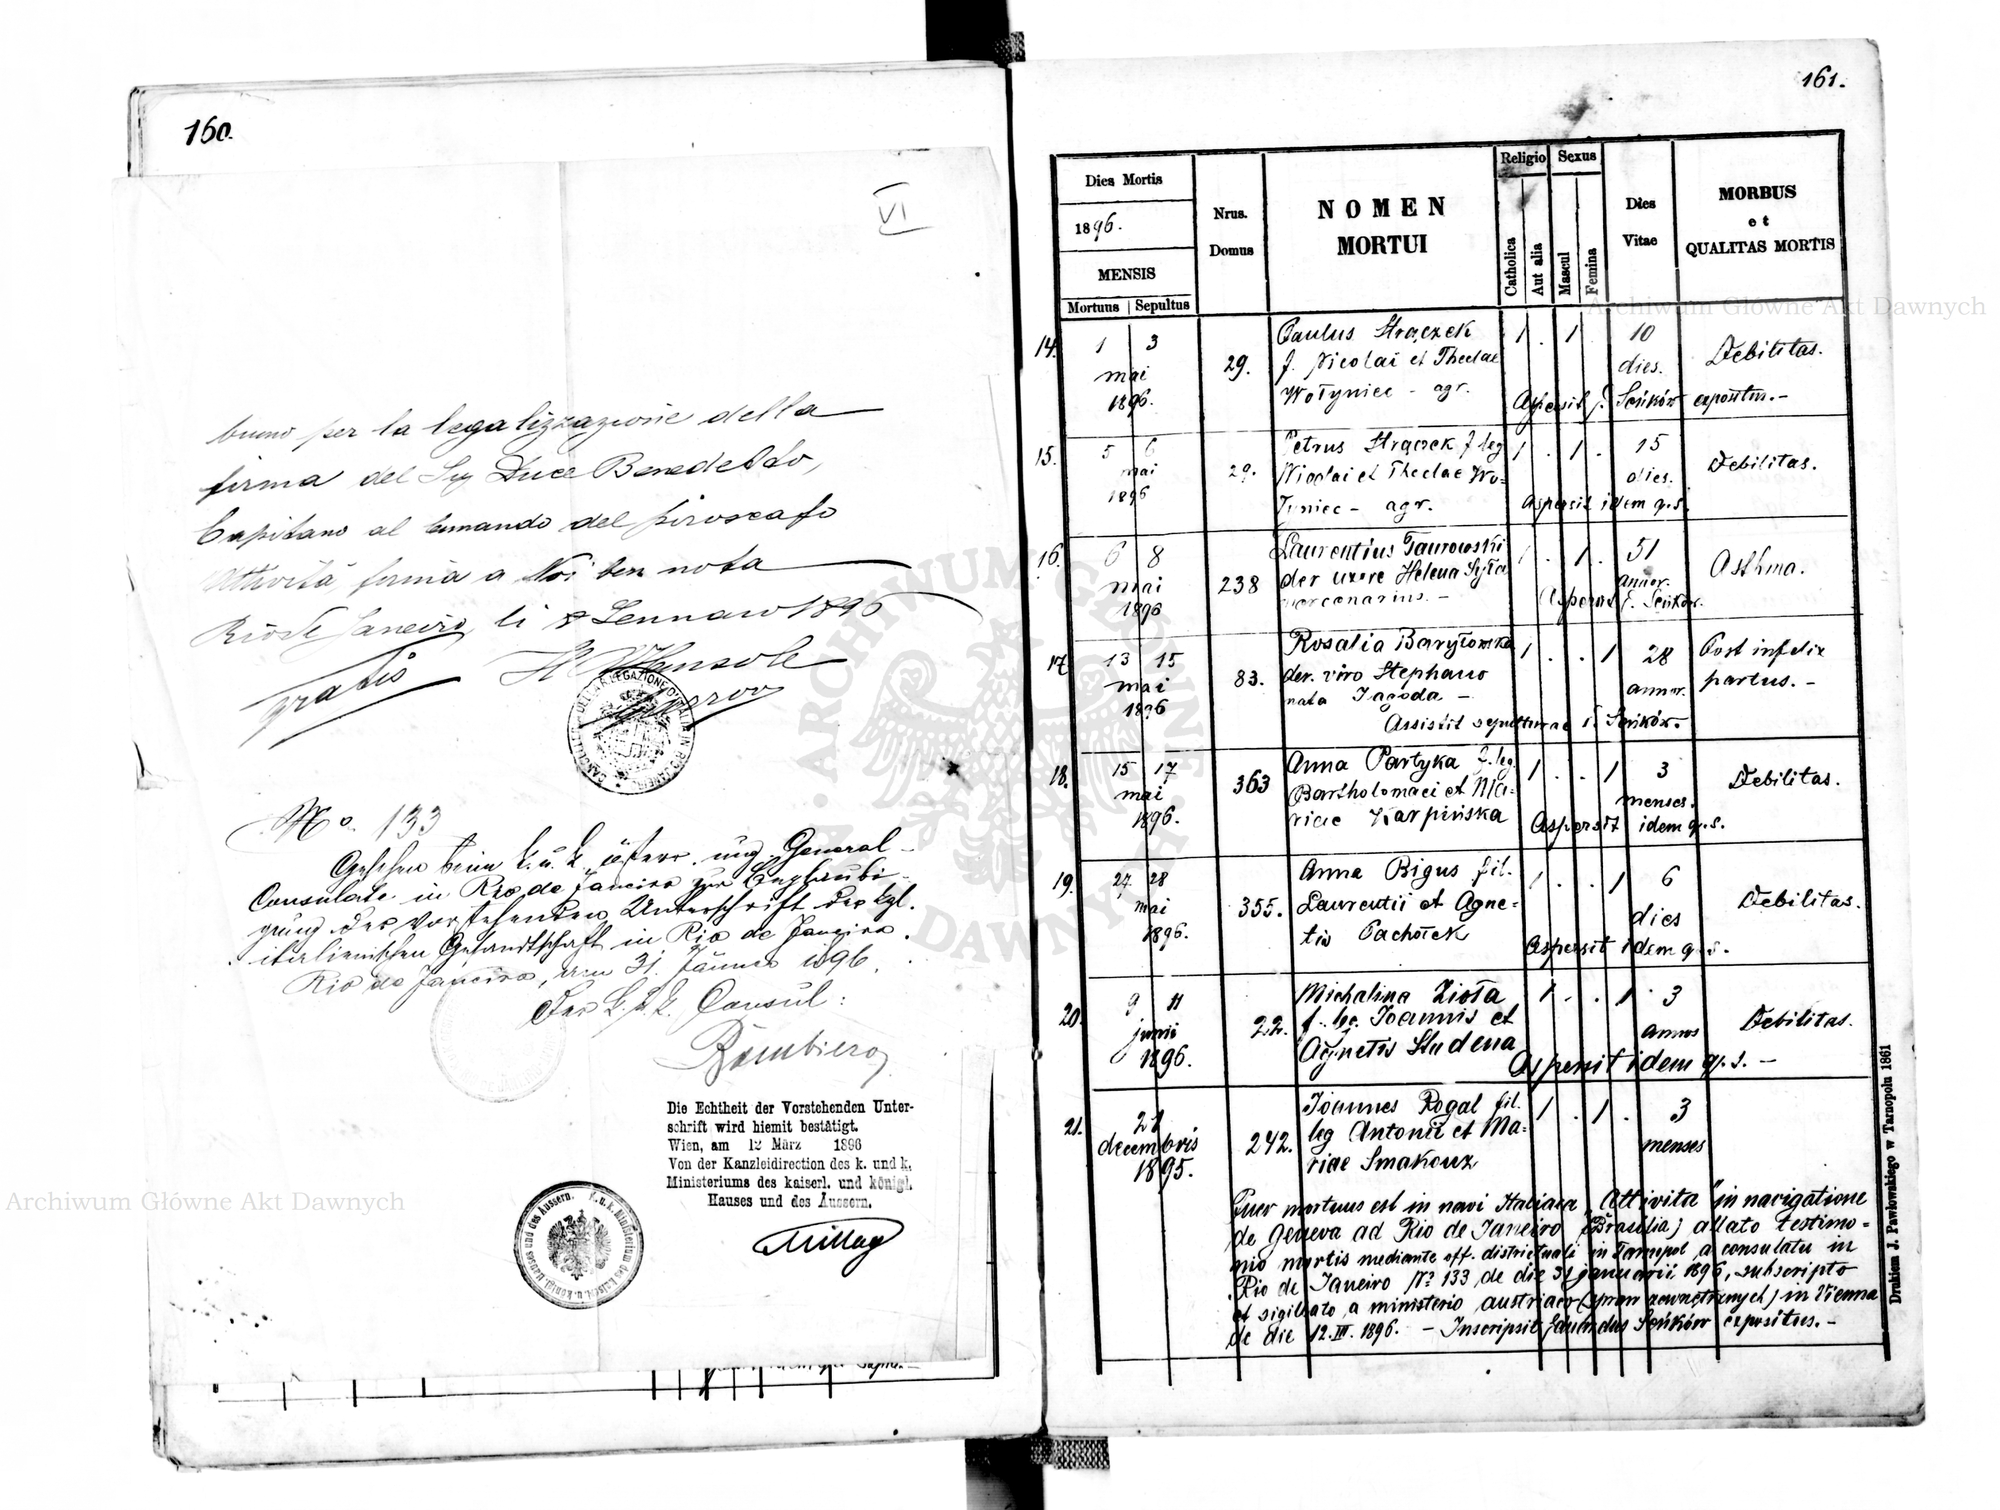 160.
VI
buono per la legalizzazione della
firma del Sig Duce Benedetto,
Capitano al comando del piroscafo
Attività, firma a Noi ben nota
Rio de Janeiro, li 8 Gennaro 1896
gratis
No. 133
Gesehen beim k. u. k. österr. ung. General-
Consulate in Rio de Janeiro zur Beglaubi-
gung der vorstehenden Unterschrift der kgl.
italienischen Gesandtschaft in Rio de Janeiro.
Rio de Janeiro, am 31. Jänner 1896.
Der k. u. k. Consul:
Die Echtheit der Vorstehenden Unter-
schrift wird hiemit bestätigt.
Wien, am 12 März 1896
Von der Kanzleidirection des k. und k.
Ministeriums des kaiserl. und königl.
Hauses und des Äussern.
K. u. k. Ministerium des kaiserl. u. königl. Hauses und des Aussern.
161.
Dies Mortis
1896.
MENSIS
Mortuus | Sepultus
Nrus.
Domus
NOMEN
MORTUI
Religio
Catholica
Aut alia
Sexus
Mascul
Femina
Dies
Vitae
MORBUS
et
QUALITAS MORTIS
14. 1 3 29. Paulus Strączek 1 . 1 10 Debilitas.
mai f. Nicolai et Theclae dies.
1896. Wołyniec - agr. Aspersit f. Seńków expositus.-
15. 5 6 29. Petrus Strączek f leg 1 . 1 . 15 Debilitas.
mai Nicolai et Theclae Wo= dies.
1896 łyniec - agr. Aspersit idem q.s.
16. 6 8 238 Laurentius Taurowski 1 . 1 . 51 Asthma.
mai der uxore Helena Syła annor.
1896 mercenarius. - Aspersit f. Seńków.
17. 13 15 83. Rosalia Baryłowska 1 . . 1 28 Post infelix
mai der. viro Stephano annor. partus. -
1896 nata Jagoda -
Assistit sepulturae f. Seńków.-
18. 15 17 363 Anna Partyka f. leg. 1 . . 1 3 Debilitas.
mai Bartholomaei et Ma- menses.
1896. riae Karpińska Aspersit idem q.s.
19. 27 28 355. Anna Bigus fil. 1 . . 1 6 Debilitas.
mai Laurentii et Agne- dies
1896. tis Pachołek Aspersit idem q.s.
20. 9 11 22. Michalina Zioła 1 . . 1 3 Debilitas.
junii f. leg. Joannis et annos
1896. Agnetis Studena Aspersit idem q.s. -
21. 21 242. Joannes Rogal fil. 1 . 1 . 3
decembris leg Antonii et Ma- menses
1895. riae Smakouz
Puer mortuus est in navi Italiaca "Attivita" in navigatione
de Geneva ad Rio de Janeiro (Brasilia) allato testimo=
nio mortis mediante off. districtuali in Tarnopol a consulatu in
Rio de Janeiro No 133 de die 31 januarii 1896, subscripto
et sigillato a ministerio austriaco (spraw zewnętrznych) in Vienna
de die 12. III. 1896. - Inscripsit Seńków expositus. -
Drukiem J. Pawłowskiego w Tarnopolu 1861
Archiwum Główne Akt Dawnych
Archiwum Główne Akt Dawnych
ARCHIWUM GŁÓWNE AKT DAWNYCH